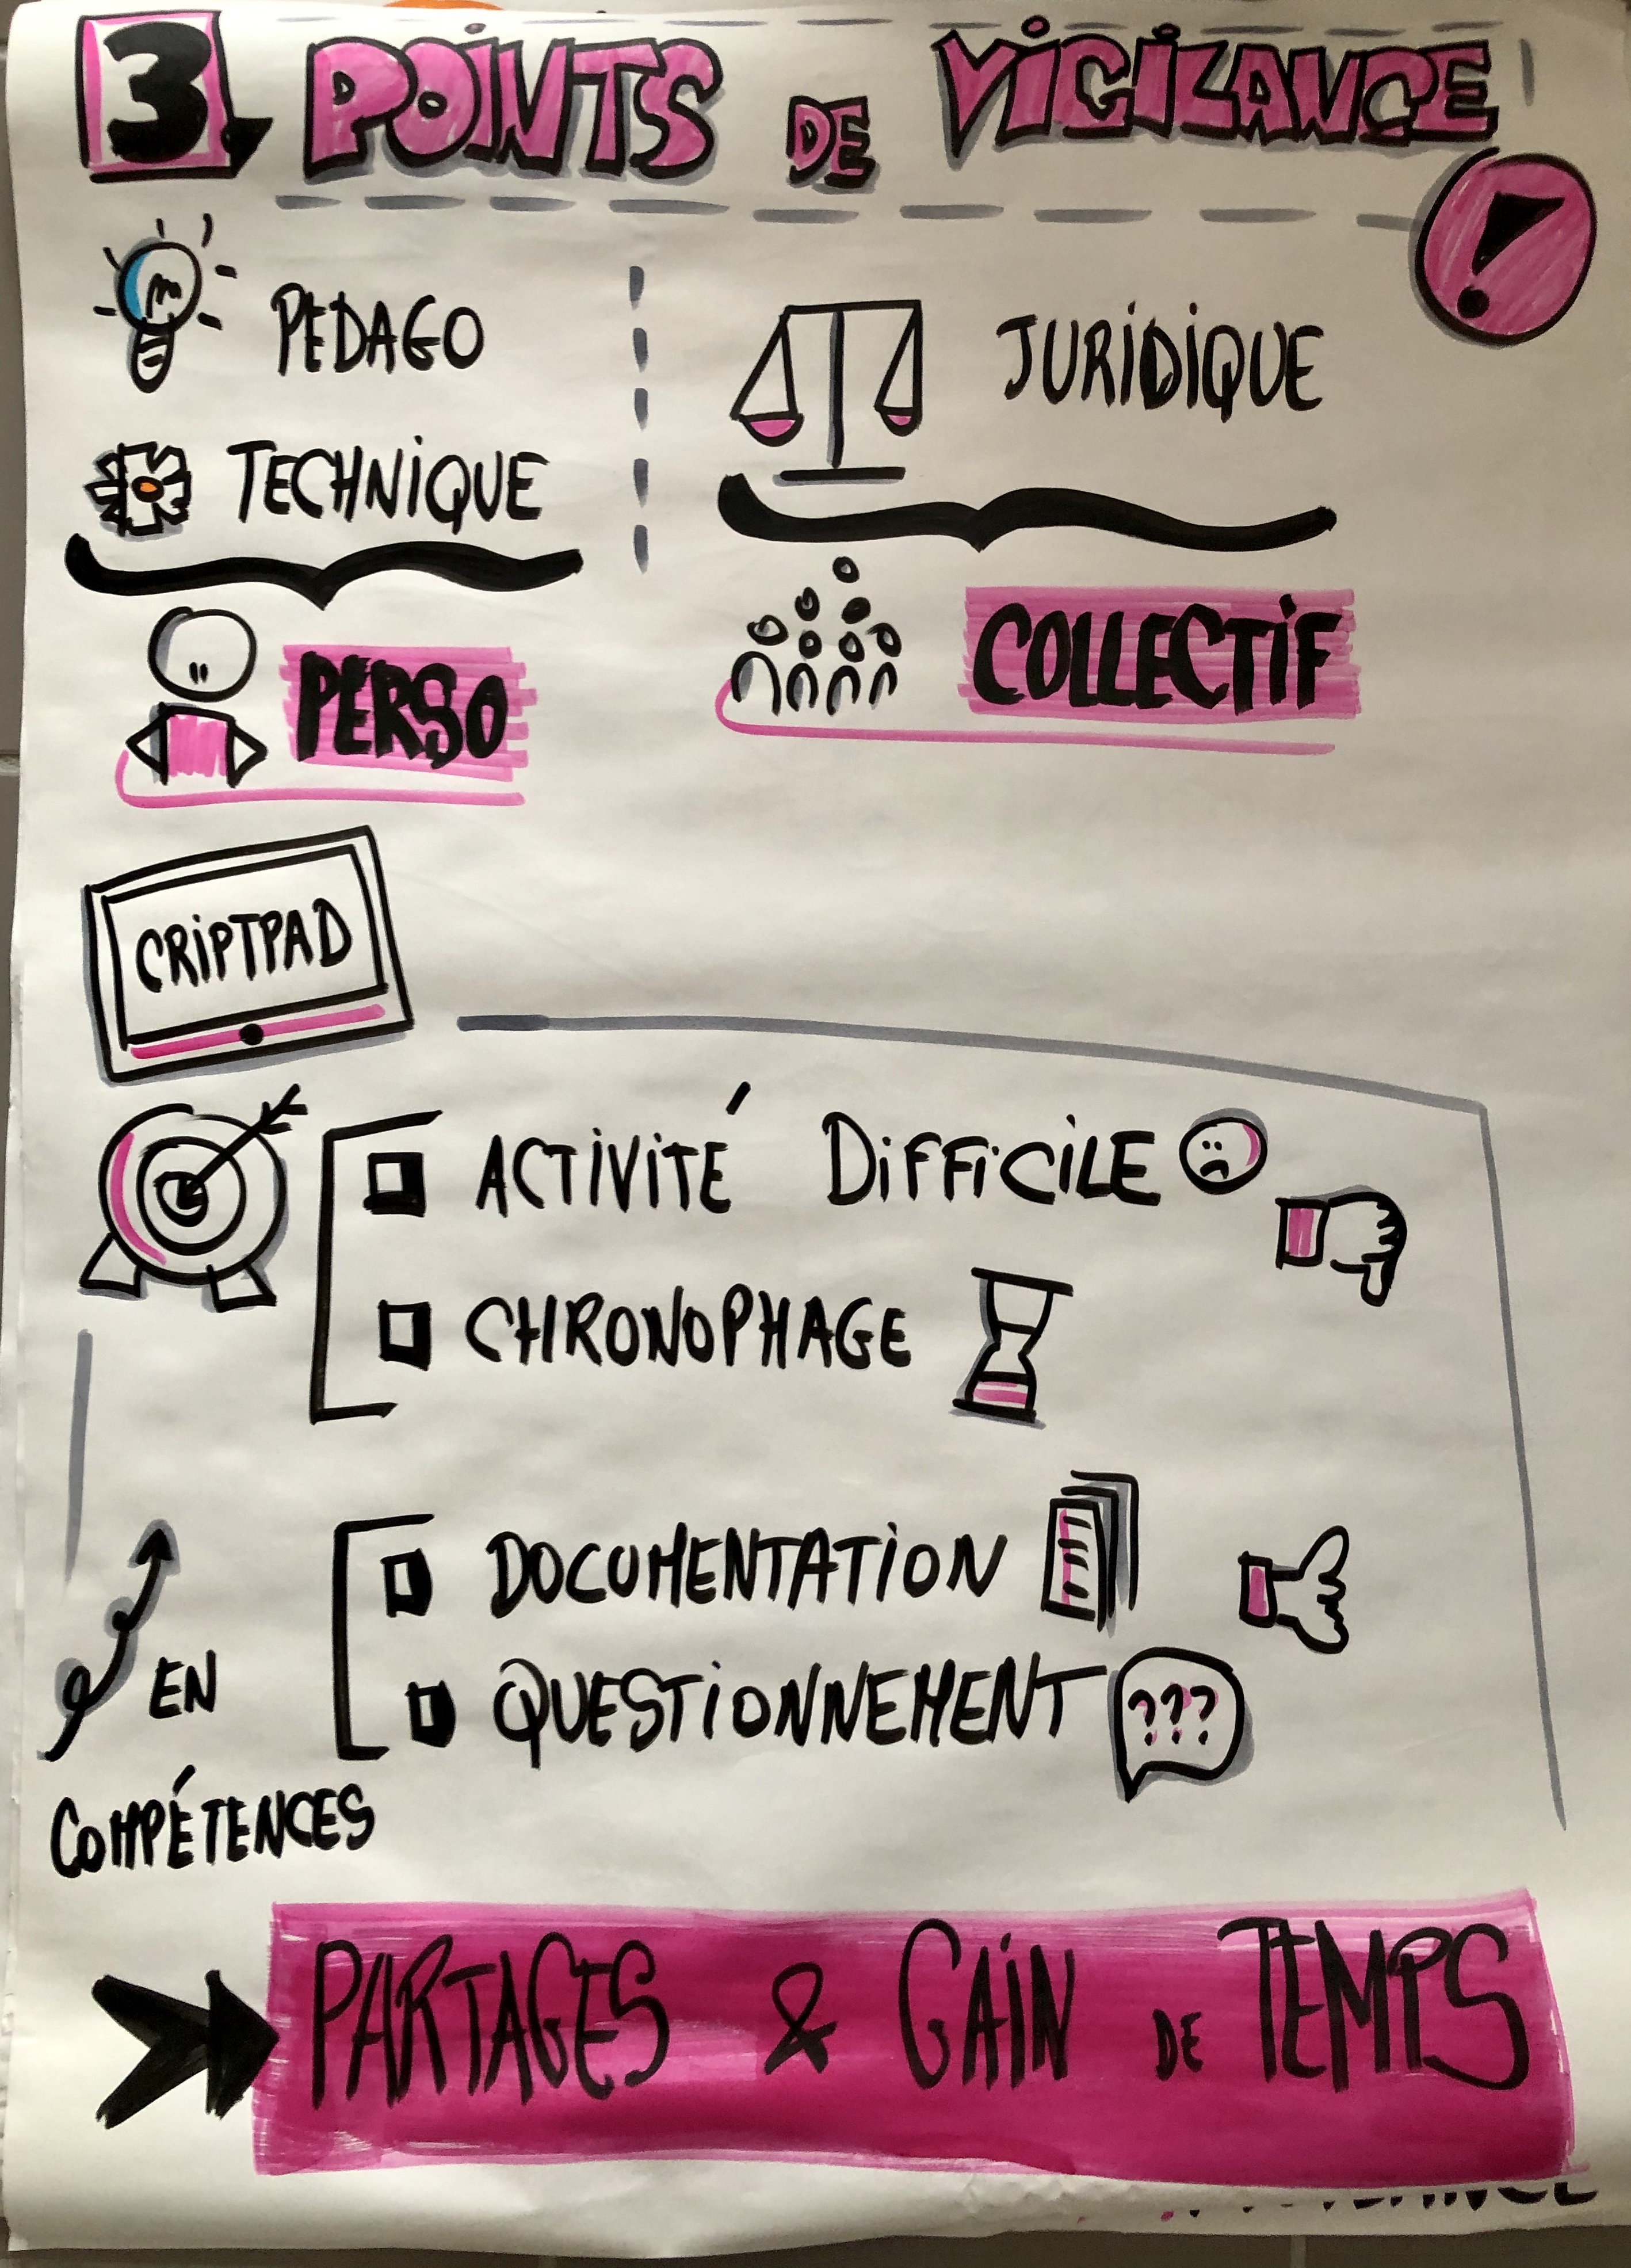 3 POINTS DE VIGILANCE
!
PEDAGO
TECHNIQUE
PERSO
JURIDIQUE
COLLECTIF
CRIPTPAD
ACTIVITÉ DIFFICILE
CHRONOPHAGE
DOCUMENTATION
QUESTIONNEMENT ???
EN
COMPÉTENCES
PARTAGES & GAIN DE TEMPS